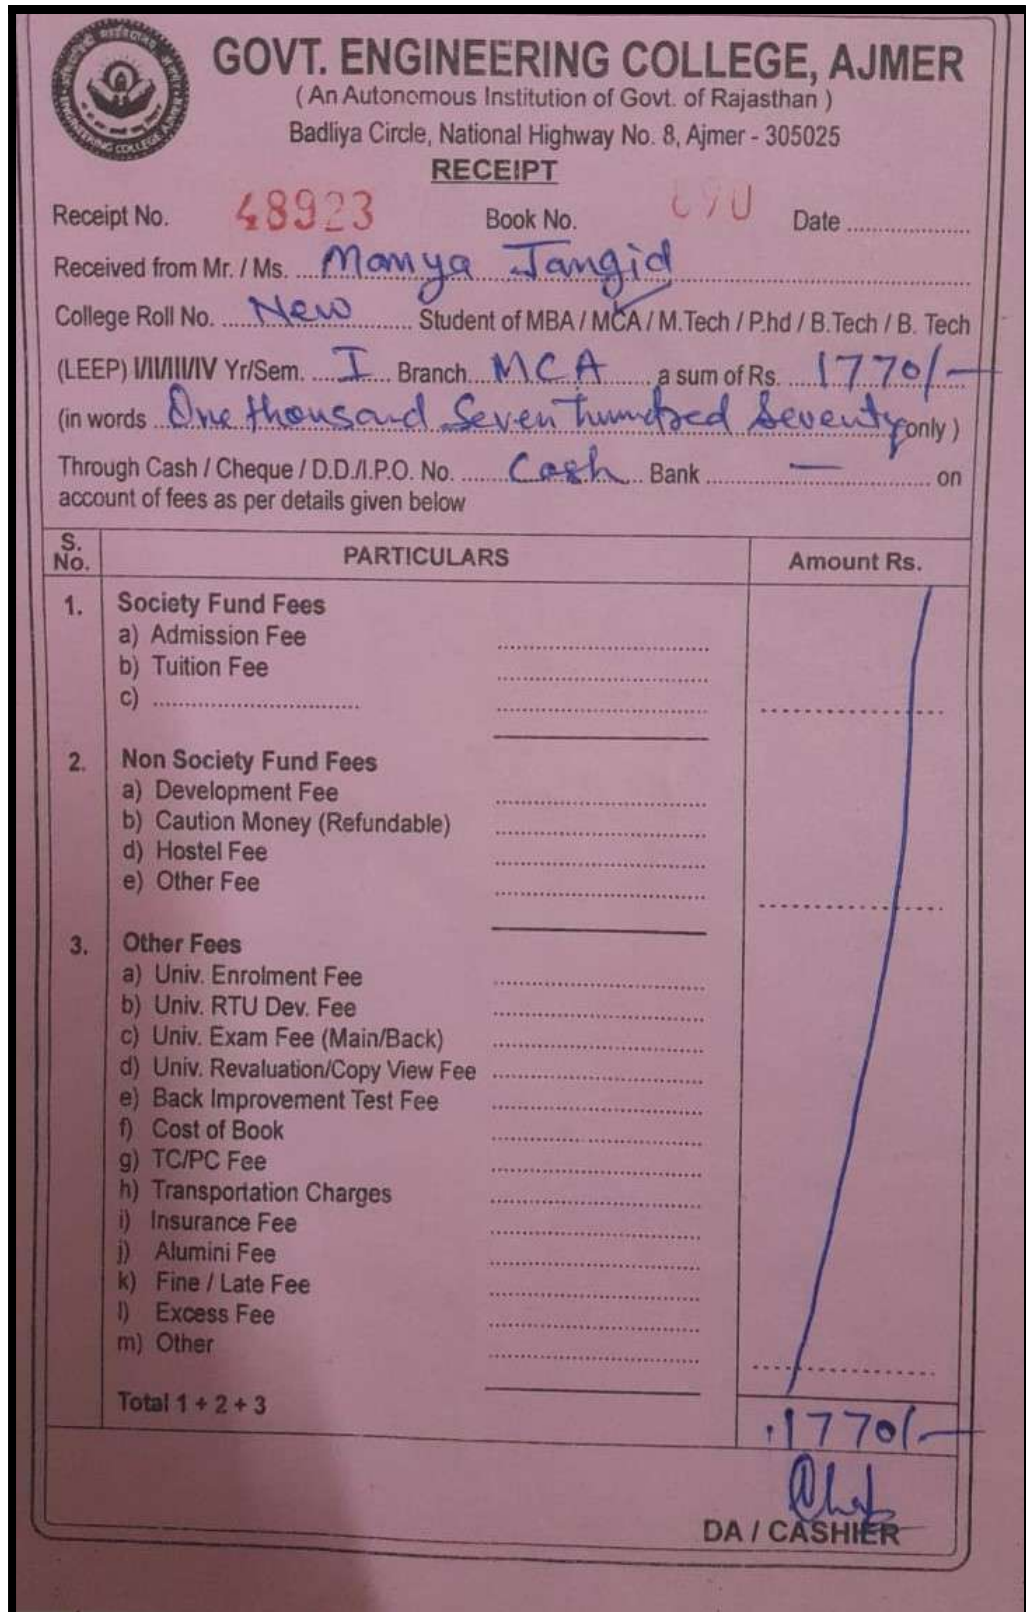 GOVT. ENGINEERING COLLEGE, AJMER
( An Autonomous Institution of Govt. of Rajasthan )
Badliya Circle, National Highway No. 8, Ajmer - 305025
RECEIPT
Receipt No. 48923 Book No. Date ....................
Received from Mr. / Ms. Manya Jangid
College Roll No. New Student of MBA / MCA / M.Tech / P.hd / B.Tech / B. Tech
(LEEP) I/II/III/IV Yr/Sem. I Branch MCA a sum of Rs. 1770/-
(in words One thousand Seven hundred Seventy only )
Through Cash / Cheque / D.D./I.P.O. No. Cash Bank — on
account of fees as per details given below
S. No. PARTICULARS Amount Rs.
1. Society Fund Fees
a) Admission Fee
b) Tuition Fee
c) ..............................
2. Non Society Fund Fees
a) Development Fee
b) Caution Money (Refundable)
d) Hostel Fee
e) Other Fee
3. Other Fees
a) Univ. Enrolment Fee
b) Univ. RTU Dev. Fee
c) Univ. Exam Fee (Main/Back)
d) Univ. Revaluation/Copy View Fee
e) Back Improvement Test Fee
f) Cost of Book
g) TC/PC Fee
h) Transportation Charges
i) Insurance Fee
j) Alumini Fee
k) Fine / Late Fee
l) Excess Fee
m) Other
Total 1 + 2 + 3 1770/-
DA / CASHIER